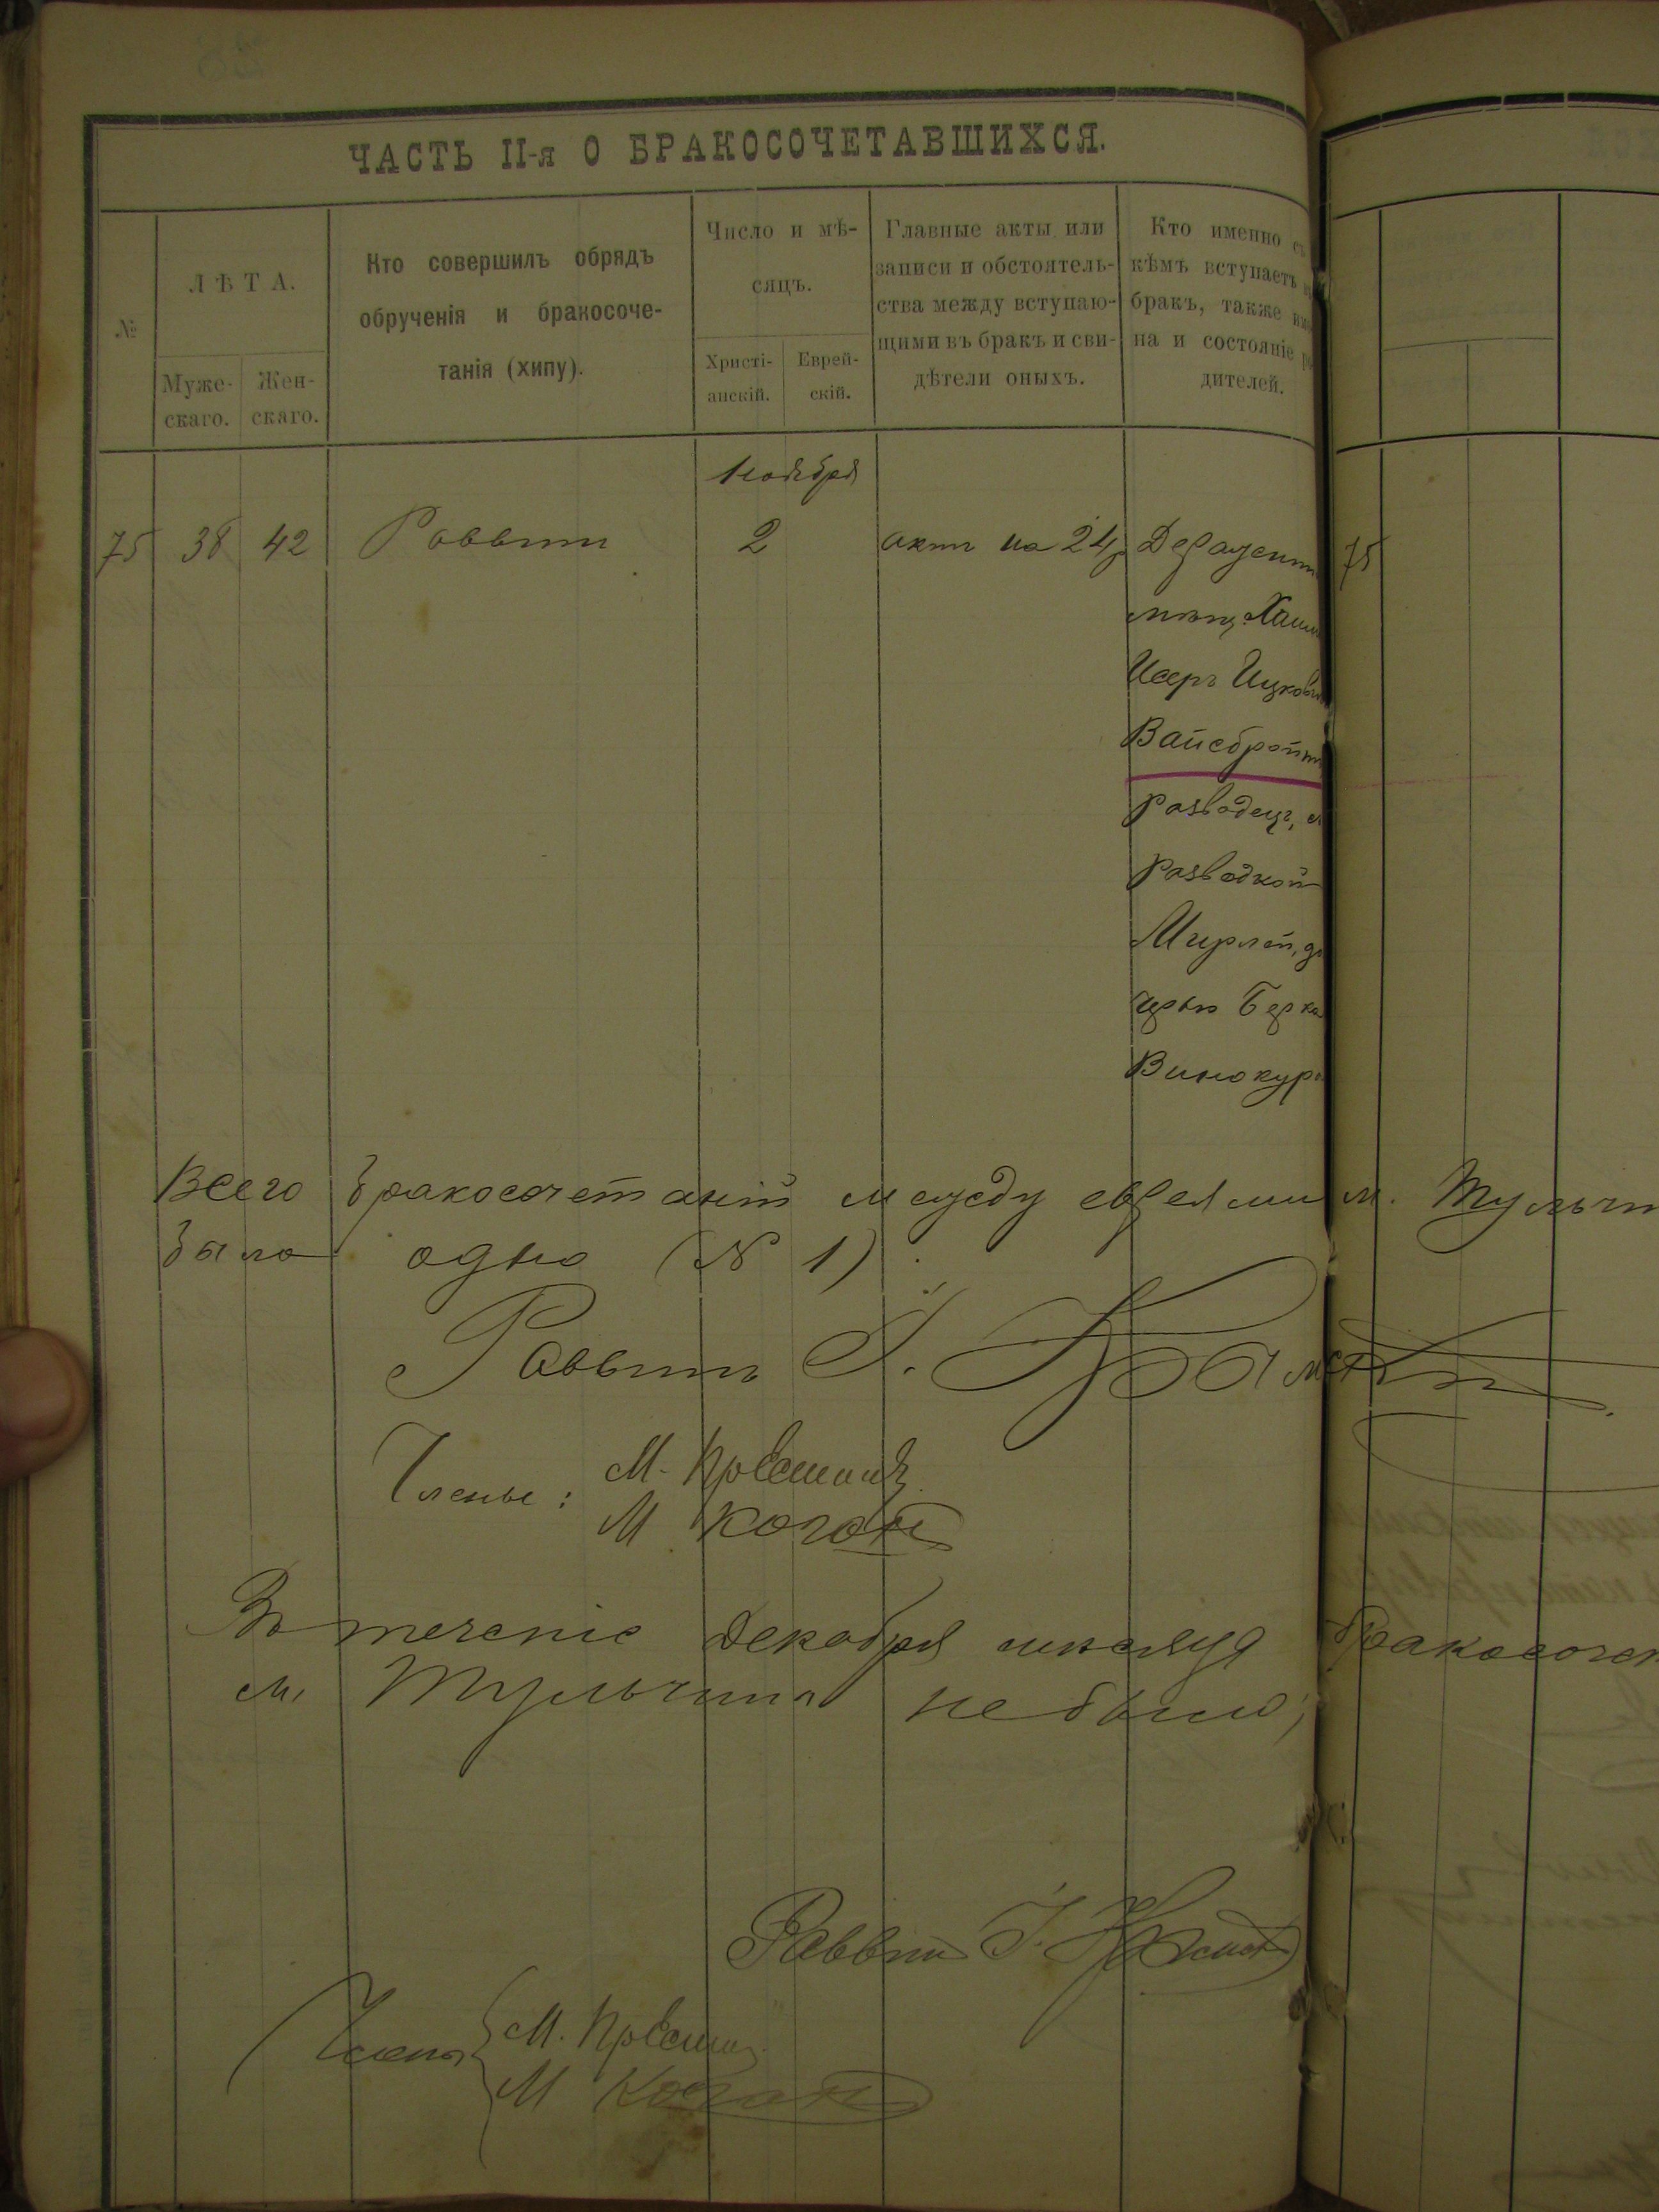 ЧАСТЬ II-я О БРАКОСОЧЕТАВШИХСЯ.
№
ЛѢТА.
Муже-
скаго.
Жен-
скаго.
Кто совершилъ обрядъ
обрученія и бракосоче-
танія (хипу).
Число и мѣ-
сяцъ.
Христі-
анскій.
Еврей-
скій.
Главные акты или
записи и обстоятель-
ства между вступаю-
щими въ бракъ и сви-
дѣтели оныхъ.
Кто именно съ
кѣмъ вступаетъ
бракъ, также
на и состояніе
дителей.
Ноября
75 38 42 Раввинъ 2 актъ на 24р 75
Хаим
Исеръ Ицков
Вайсбройт
разводецъ, с
разводкой
Мирлей, до
черью Берка
Винокур
Всего бракосочетаній между евреями м. Тульчи
было одно (№ 1).
Раввинъ І.
Члены: М.
М Коган
Въ теченіе Декабря мѣсяца бракосочет
м. Тульчина не было;
Раввинъ І.
Члены М.
М Коган